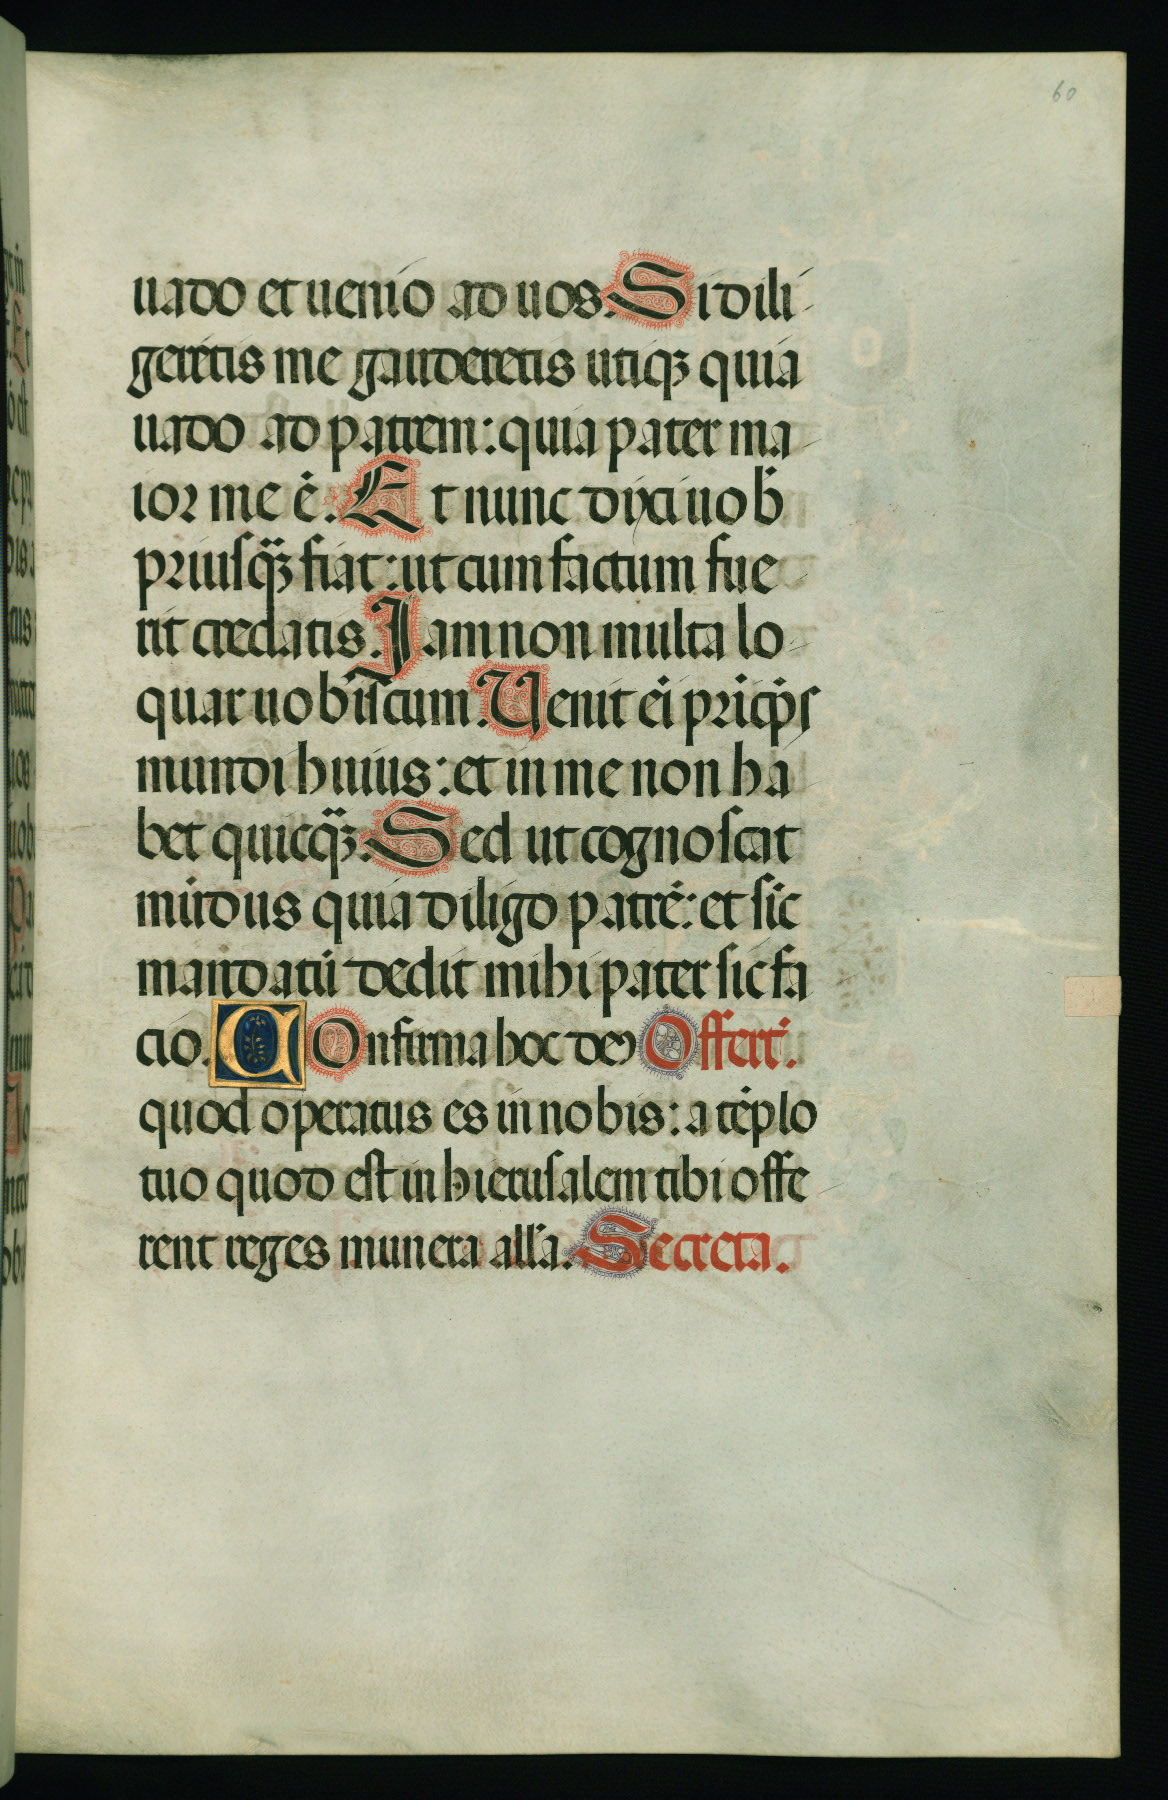 60
uado et uenio ad uos. Si dili-
geretis me gauderetis utiqꝫ quia
uado ad patrem: quia pater ma-
ior me ē. Et nunc dixi uob̄
priusqꝫ̄ fiat: ut cum factum fue
rit credatis. Iam non multa lo-
quar uobiscum. Uenit ei̇̄ pricp̄s
mundi huius: et in me non ha
bet quicqꝫ̄. Sed ut cognoscat
mūdus quia diligo patrē: et sic̄
mandatū dedit mihi pater sic fa
cio. COnfirma hoc deꝰ Offert̄.
quod operatus es in nobis: a tēplo
tuo quod est in hierusalem tibi offe
rent reges munera all'a. Secreta.